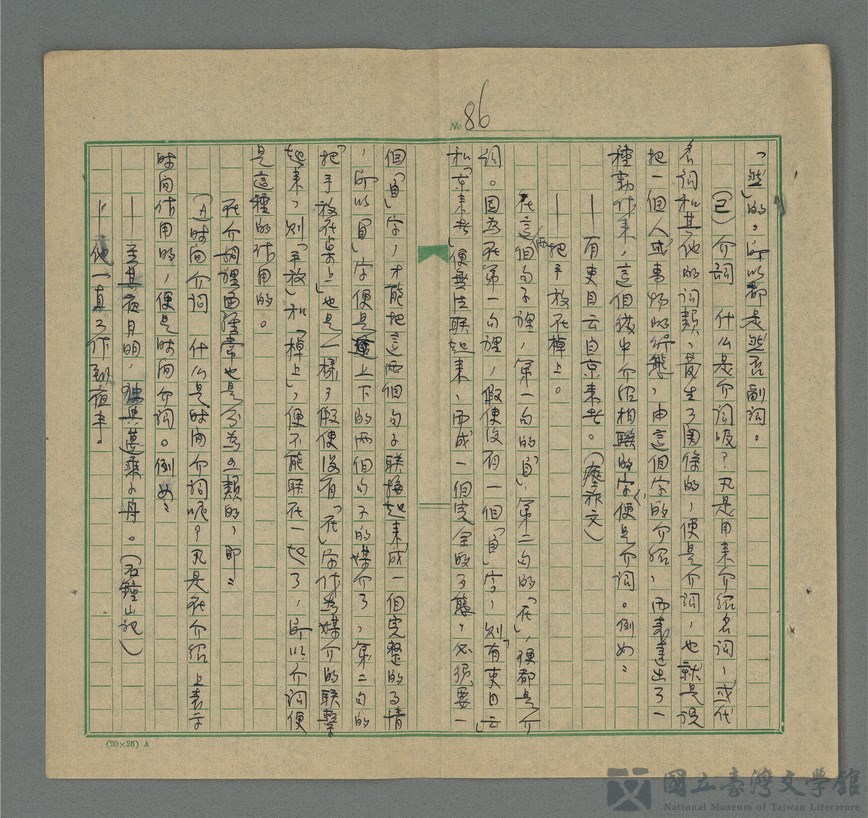 No 86
「然」的，所以都是然否副詞。
(己)介詞　什么是介詞呢？凡是用來介紹名詞，或代
名詞和其他的詞類，發生了関係的，便是介詞，也就是說
把一個人或事物的行態，由這個字的介紹，而表達出了一
種動作來，這個從中介紹相聯的字，便是介詞。例如：
—有吏自云自京來者。(瘞旅文)
—把手放在棹上。
在這兩個句子裡，第一句的「自」，第二句的「在」，便都是介
詞。因為在第一句裡，假使沒有一個「自」字，則「有吏自云」
和「京來者」便無法聯起來，而成一個完全的了態，必須要一
個「自」字，才能把這兩個句子聯接起來成一個完整的事情
，所以「自」字便是上下的兩個句子的媒介了，第二句的
「把手放在桌上」也是一樣，假使沒有「在」字作為媒介的聯繫
起來，則「手放」和「棹上」，便不能聯在一起了，所以介詞便
是這種的作用的。
在介詞裡面經常也是分為四類的，即：
(A)时间介詞　什么是时间介詞呢？凡是在介紹上表示
时间作用的，便是时间介詞。例如：
—至其夜月明，獨與邁乘小舟。(石鐘山記)
—他一直工作到夜半
(20×25) A
國立臺灣文學館
National Museum of Taiwan Literature